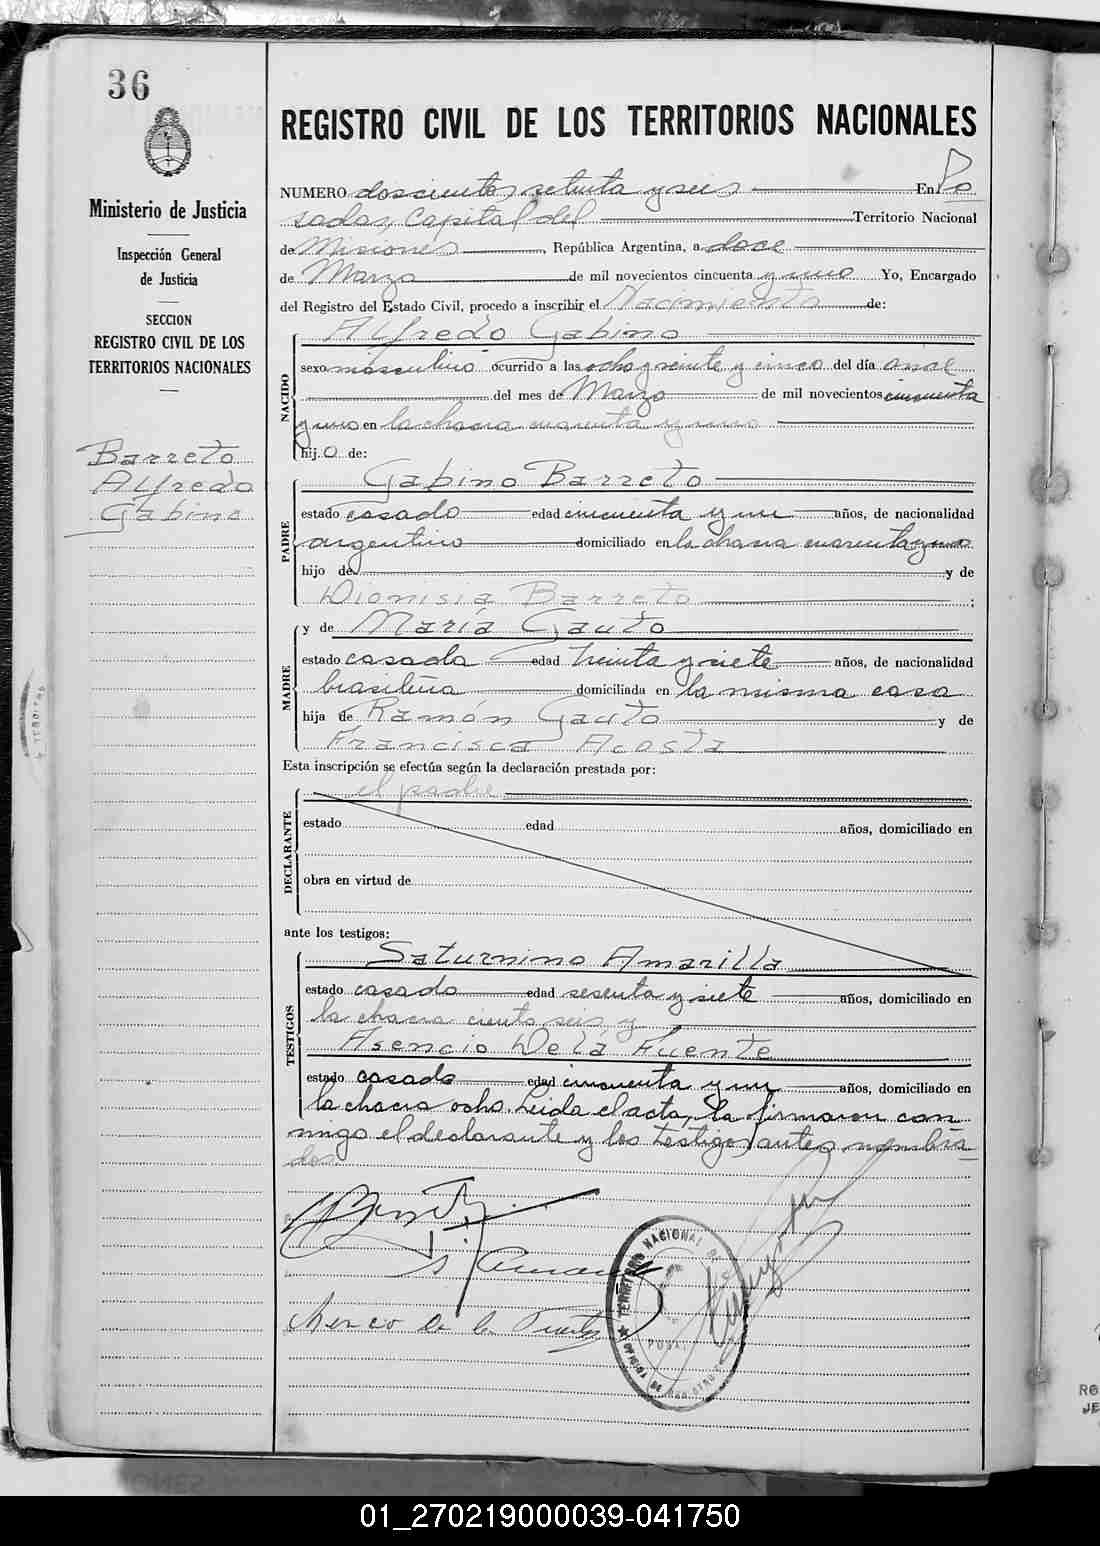 36
Ministerio de Justicia
Inspección General
de Justicia
SECCION
REGISTRO CIVIL DE LOS
TERRITORIOS NACIONALES
Barreto
Alfredo
Gabino
REGISTRO CIVIL DE LOS TERRITORIOS NACIONALES
NUMERO doscientos setenta y seis En Po
sadas, capital del Territorio Nacional
de Misiones, República Argentina, a doce
de Marzo de mil novecientos cincuenta y uno Yo, Encargado
del Registro del Estado Civil, procedo a inscribir el Nacimiento de:
Alfredo Gabino
NACIDO
sexo masculino ocurrido a las ocho y veinte y cinco del día once
del mes de Marzo de mil novecientos cincuenta
y uno en la chacra cuarenta y uno
hijo de:
Gabino Barreto
PADRE
estado casado edad cincuenta y un años, de nacionalidad
argentino domiciliado en la chacra cuarenta y uno
hijo de y de
Dionisia Barreto ;
y de María Gauto
MADRE
estado casada edad treinta y siete años, de nacionalidad
brasileña domiciliada en la misma casa
hija de Ramón Gauto y de
Francisca Acosta
Esta inscripción se efectúa según la declaración prestada por:
el padre
DECLARANTE
estado edad años, domiciliado en
obra en virtud de
ante los testigos:
Saturnino Amarilla
TESTIGOS
estado casado edad sesenta y siete años, domiciliado en
la chacra ciento seis, y
Asencio De la Fuente
estado casado edad cincuenta y un años, domiciliado en
la chacra ocho. Leida el acta, la firmaron con
migo el declarante y los testigos antes nombra
dos.
de la Fuente
TERRITORIO NACIONAL
OFICINA DE REGISTRO
01_270219000039-041750